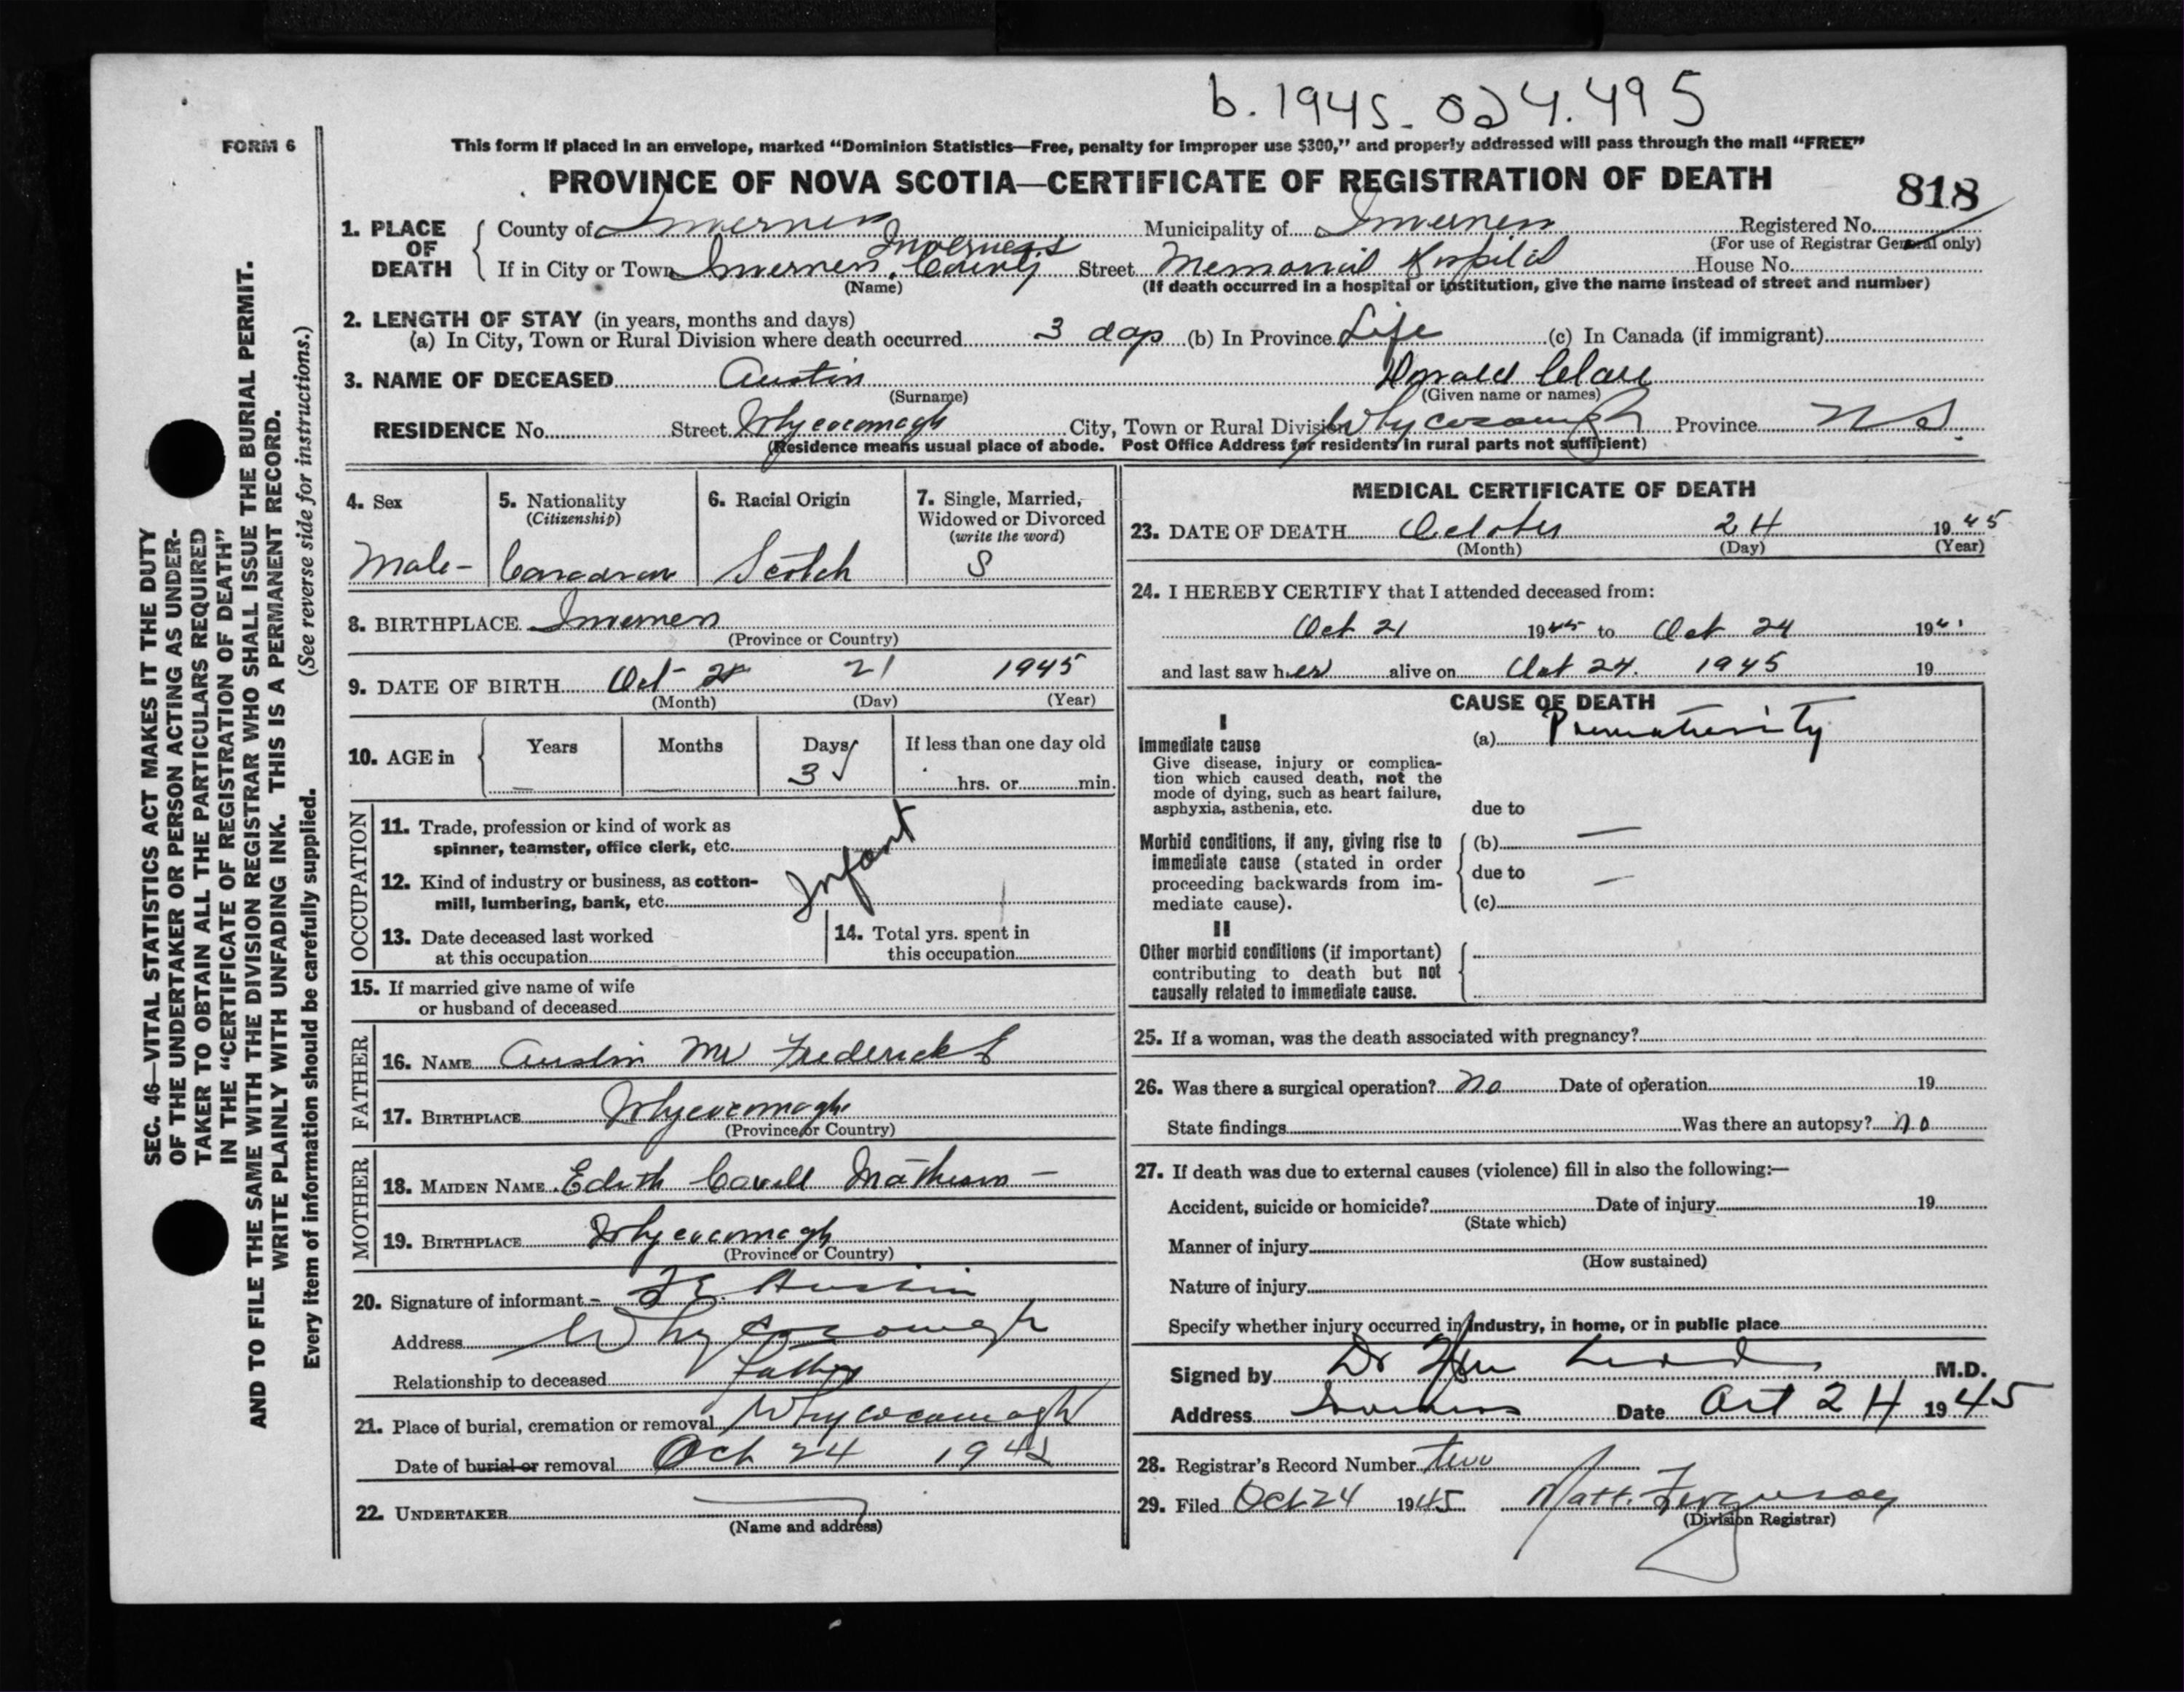 b. 1945-024.495
FORM 6
This form if placed in an envelope, marked “Dominion Statistics—Free, penalty for improper use $300,” and properly addressed will pass through the mail “FREE”
PROVINCE OF NOVA SCOTIA—CERTIFICATE OF REGISTRATION OF DEATH
818
1. PLACE OF DEATH
County of Inverness Municipality of Inverness Registered No.
(For use of Registrar General only)
Inverness
If in City or Town Inverness, County Street Memorial Hospital House No.
(Name) (If death occurred in a hospital or institution, give the name instead of street and number)
2. LENGTH OF STAY (in years, months and days)
(a) In City, Town or Rural Division where death occurred 3 days (b) In Province Life (c) In Canada (if immigrant)
3. NAME OF DECEASED Austin Donald
(Surname) (Given name or names)
RESIDENCE No. Street Whycocomagh City, Town or Rural Division Whycocomagh Province N S.
(Residence means usual place of abode. Post Office Address for residents in rural parts not sufficient)
4. Sex
Male-
5. Nationality
(Citizenship)
Canadian
6. Racial Origin
Scotch
7. Single, Married,
Widowed or Divorced
(write the word)
S
8. BIRTHPLACE Inverness
(Province or Country)
9. DATE OF BIRTH Oct- 21 1945
(Month) (Day) (Year)
10. AGE in
Years Months Days If less than one day old
3 hrs. or min.
OCCUPATION
11. Trade, profession or kind of work as
spinner, teamster, office clerk, etc.
Infant
12. Kind of industry or business, as cotton-
mill, lumbering, bank, etc.
13. Date deceased last worked
at this occupation
14. Total yrs. spent in
this occupation
15. If married give name of wife
or husband of deceased
FATHER
16. NAME Austin Mr Frederick E
17. BIRTHPLACE Whycocomagh
(Province or Country)
MOTHER
18. MAIDEN NAME Edith Cavell Matheson —
19. BIRTHPLACE Whycocomagh
(Province or Country)
20. Signature of informant- F E. Austin
Address Whycocomagh
Relationship to deceased Father
21. Place of burial, cremation or removal Whycocomagh
Date of burial or removal Oct 24 1945
22. UNDERTAKER
(Name and address)
MEDICAL CERTIFICATE OF DEATH
23. DATE OF DEATH October 24 1945
(Month) (Day) (Year)
24. I HEREBY CERTIFY that I attended deceased from:
Oct 21 1945 to Oct 24 194
and last saw h er alive on Oct 24. 1945 19
CAUSE OF DEATH
I
Immediate cause
Give disease, injury or complica-
tion which caused death, not the
mode of dying, such as heart failure,
asphyxia, asthenia, etc.
(a) Prematurity
due to
Morbid conditions, if any, giving rise to
immediate cause (stated in order
proceeding backwards from im-
mediate cause).
(b) —
due to
—
(c)
II
Other morbid conditions (if important)
contributing to death but not
causally related to immediate cause.
25. If a woman, was the death associated with pregnancy?
26. Was there a surgical operation? No Date of operation 19
State findings Was there an autopsy? no
27. If death was due to external causes (violence) fill in also the following:—
Accident, suicide or homicide? Date of injury 19
(State which)
Manner of injury
(How sustained)
Nature of injury
Specify whether injury occurred in industry, in home, or in public place
Signed by Dr M.D.
Address Date Oct 24 1945
28. Registrar's Record Number two
29. Filed Oct 24 1945 Matt. Ferguson
(Division Registrar)
SEC. 46—VITAL STATISTICS ACT MAKES IT THE DUTY
OF THE UNDERTAKER OR PERSON ACTING AS UNDER-
TAKER TO OBTAIN ALL THE PARTICULARS REQUIRED
IN THE “CERTIFICATE OF REGISTRATION OF DEATH”
AND TO FILE THE SAME WITH THE DIVISION REGISTRAR WHO SHALL ISSUE THE BURIAL PERMIT.
WRITE PLAINLY WITH UNFADING INK. THIS IS A PERMANENT RECORD.
Every item of information should be carefully supplied. (See reverse side for instructions.)